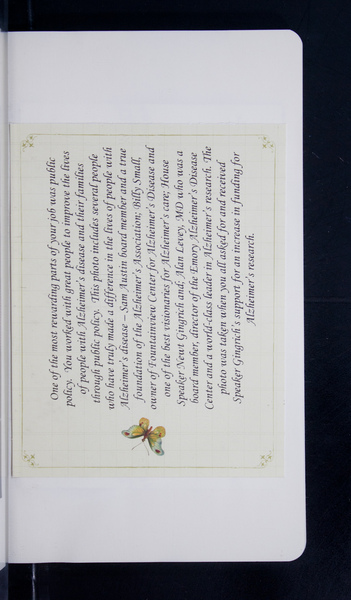 One of the most rewarding parts of your job was public
policy. You worked with great people to improve the lives
of people with Alzheimer's disease and their families
through public policy. This photo includes several people
who have truly made a difference in the lives of people with
Alzheimer's disease – Sam Austin board member and a true
foundation of the Alzheimer's Association; Billy Small,
owner of Fountainview Center for Alzheimer's Disease and
one of the best visionaries for Alzheimer's care; House
Speaker Newt Gingrich and; Alan Levey, MD who was a
board member, director of the Emory Alzheimer's Disease
Center and a world-class leader in Alzheimer's research. The
photo was taken when you all asked for and received
Speaker Gingrich's support for an increase in funding for
Alzheimer's research.